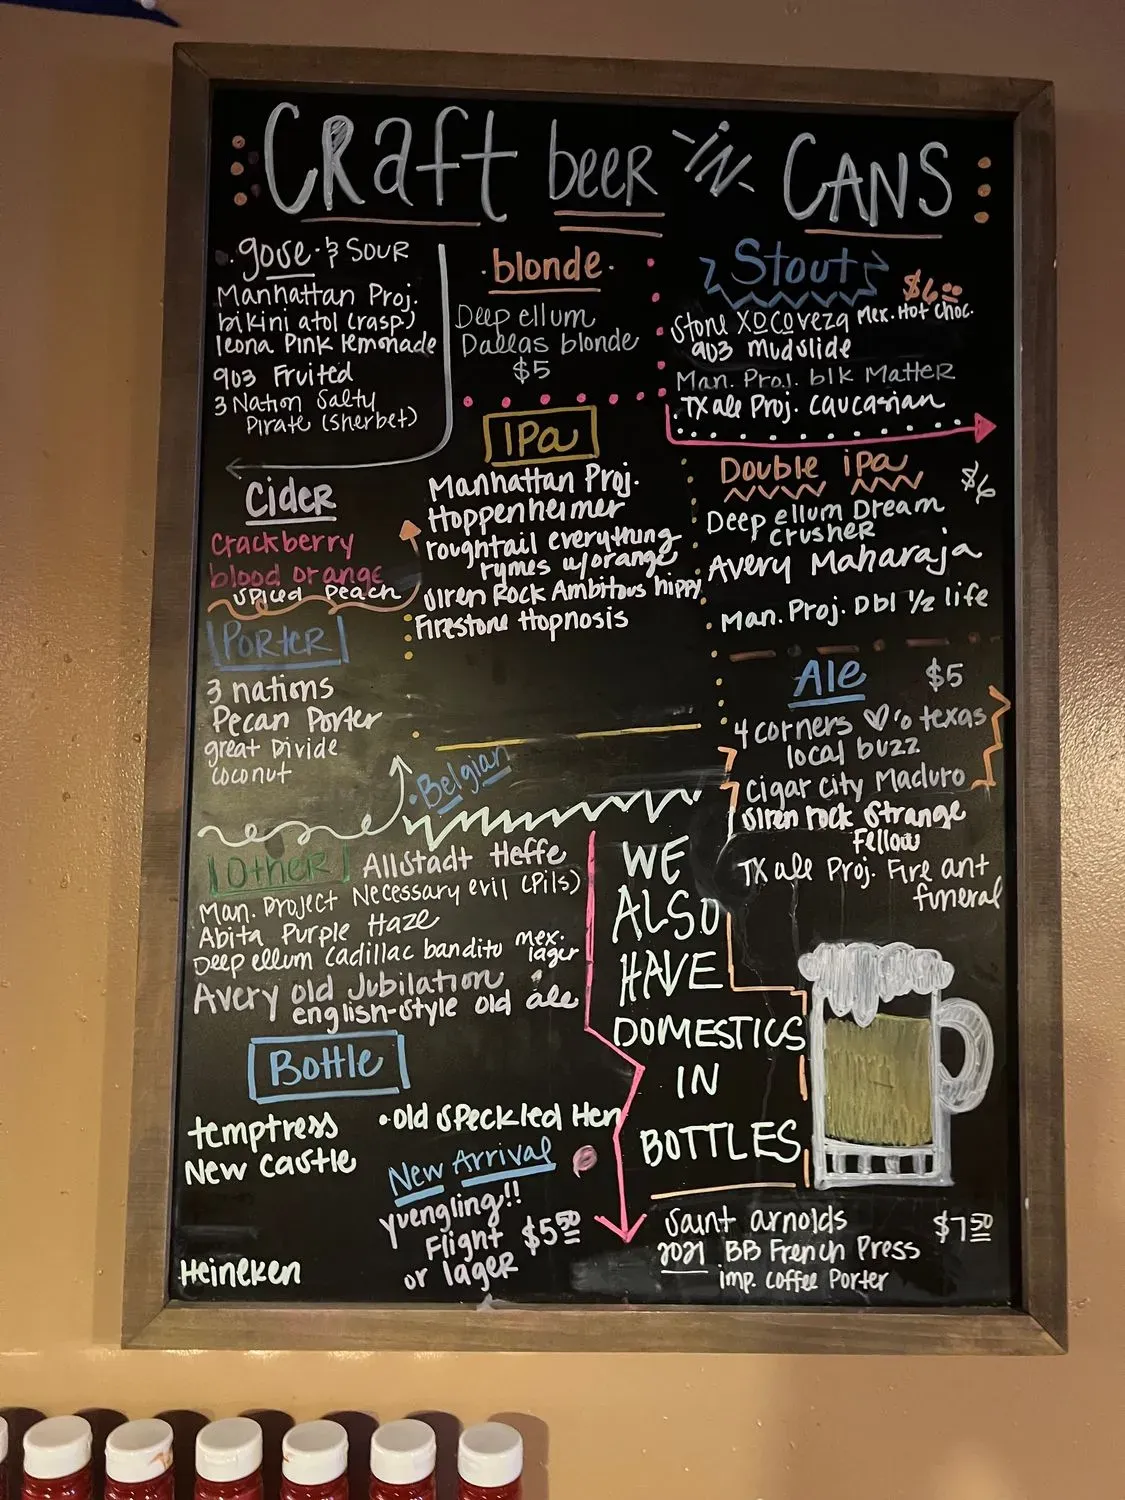 Craft beer -in- CANS
gose & SOUR
Manhattan Proj.
bikini atol (rasp.)
leona Pink lemonade
903 Fruited
3 Nation Salty
Pirate (sherbet)
blonde
Deep ellum
Dallas blonde
$5
Stout
$6.00
Stone Xocoveza Mex. Hot Choc.
903 mudslide
Man. Proj. blk Matter
TX ale Proj. caucasian
Cider
crackberry
blood orange
spiced peach
IPa
Manhattan Proj.
Hoppenheimer
roughtail everything
rymes w/orange
siren Rock Ambitous hippy
Firestone Hopnosis
Double iPa
$6
Deep ellum Dream
crusher
Avery Maharaja
Man. Proj. Dbl 1/2 life
Porter
3 nations
Pecan Porter
great Divide
coconut
Ale $5
4 corners ♡'o texas
local buzz
Cigar City Maduro
siren rock Strange
Fellow
TX ale Proj. Fire ant
funeral
• Belgian
Other
Allstadt Heffe
Man. Project Necessary evil (Pils)
Abita Purple Haze
Deep ellum Cadillac bandito mex.
lager
Avery old Jubilation
english-style old ale
WE
ALSO
HAVE
DOMESTICS
IN
BOTTLES
Bottle
temptress
New Castle
• old speckled Hen
New Arrival
yuengling!!
Flight
or lager
$5.50
Heineken
saint arnolds
2021 BB French Press
imp. coffee Porter
$7.50